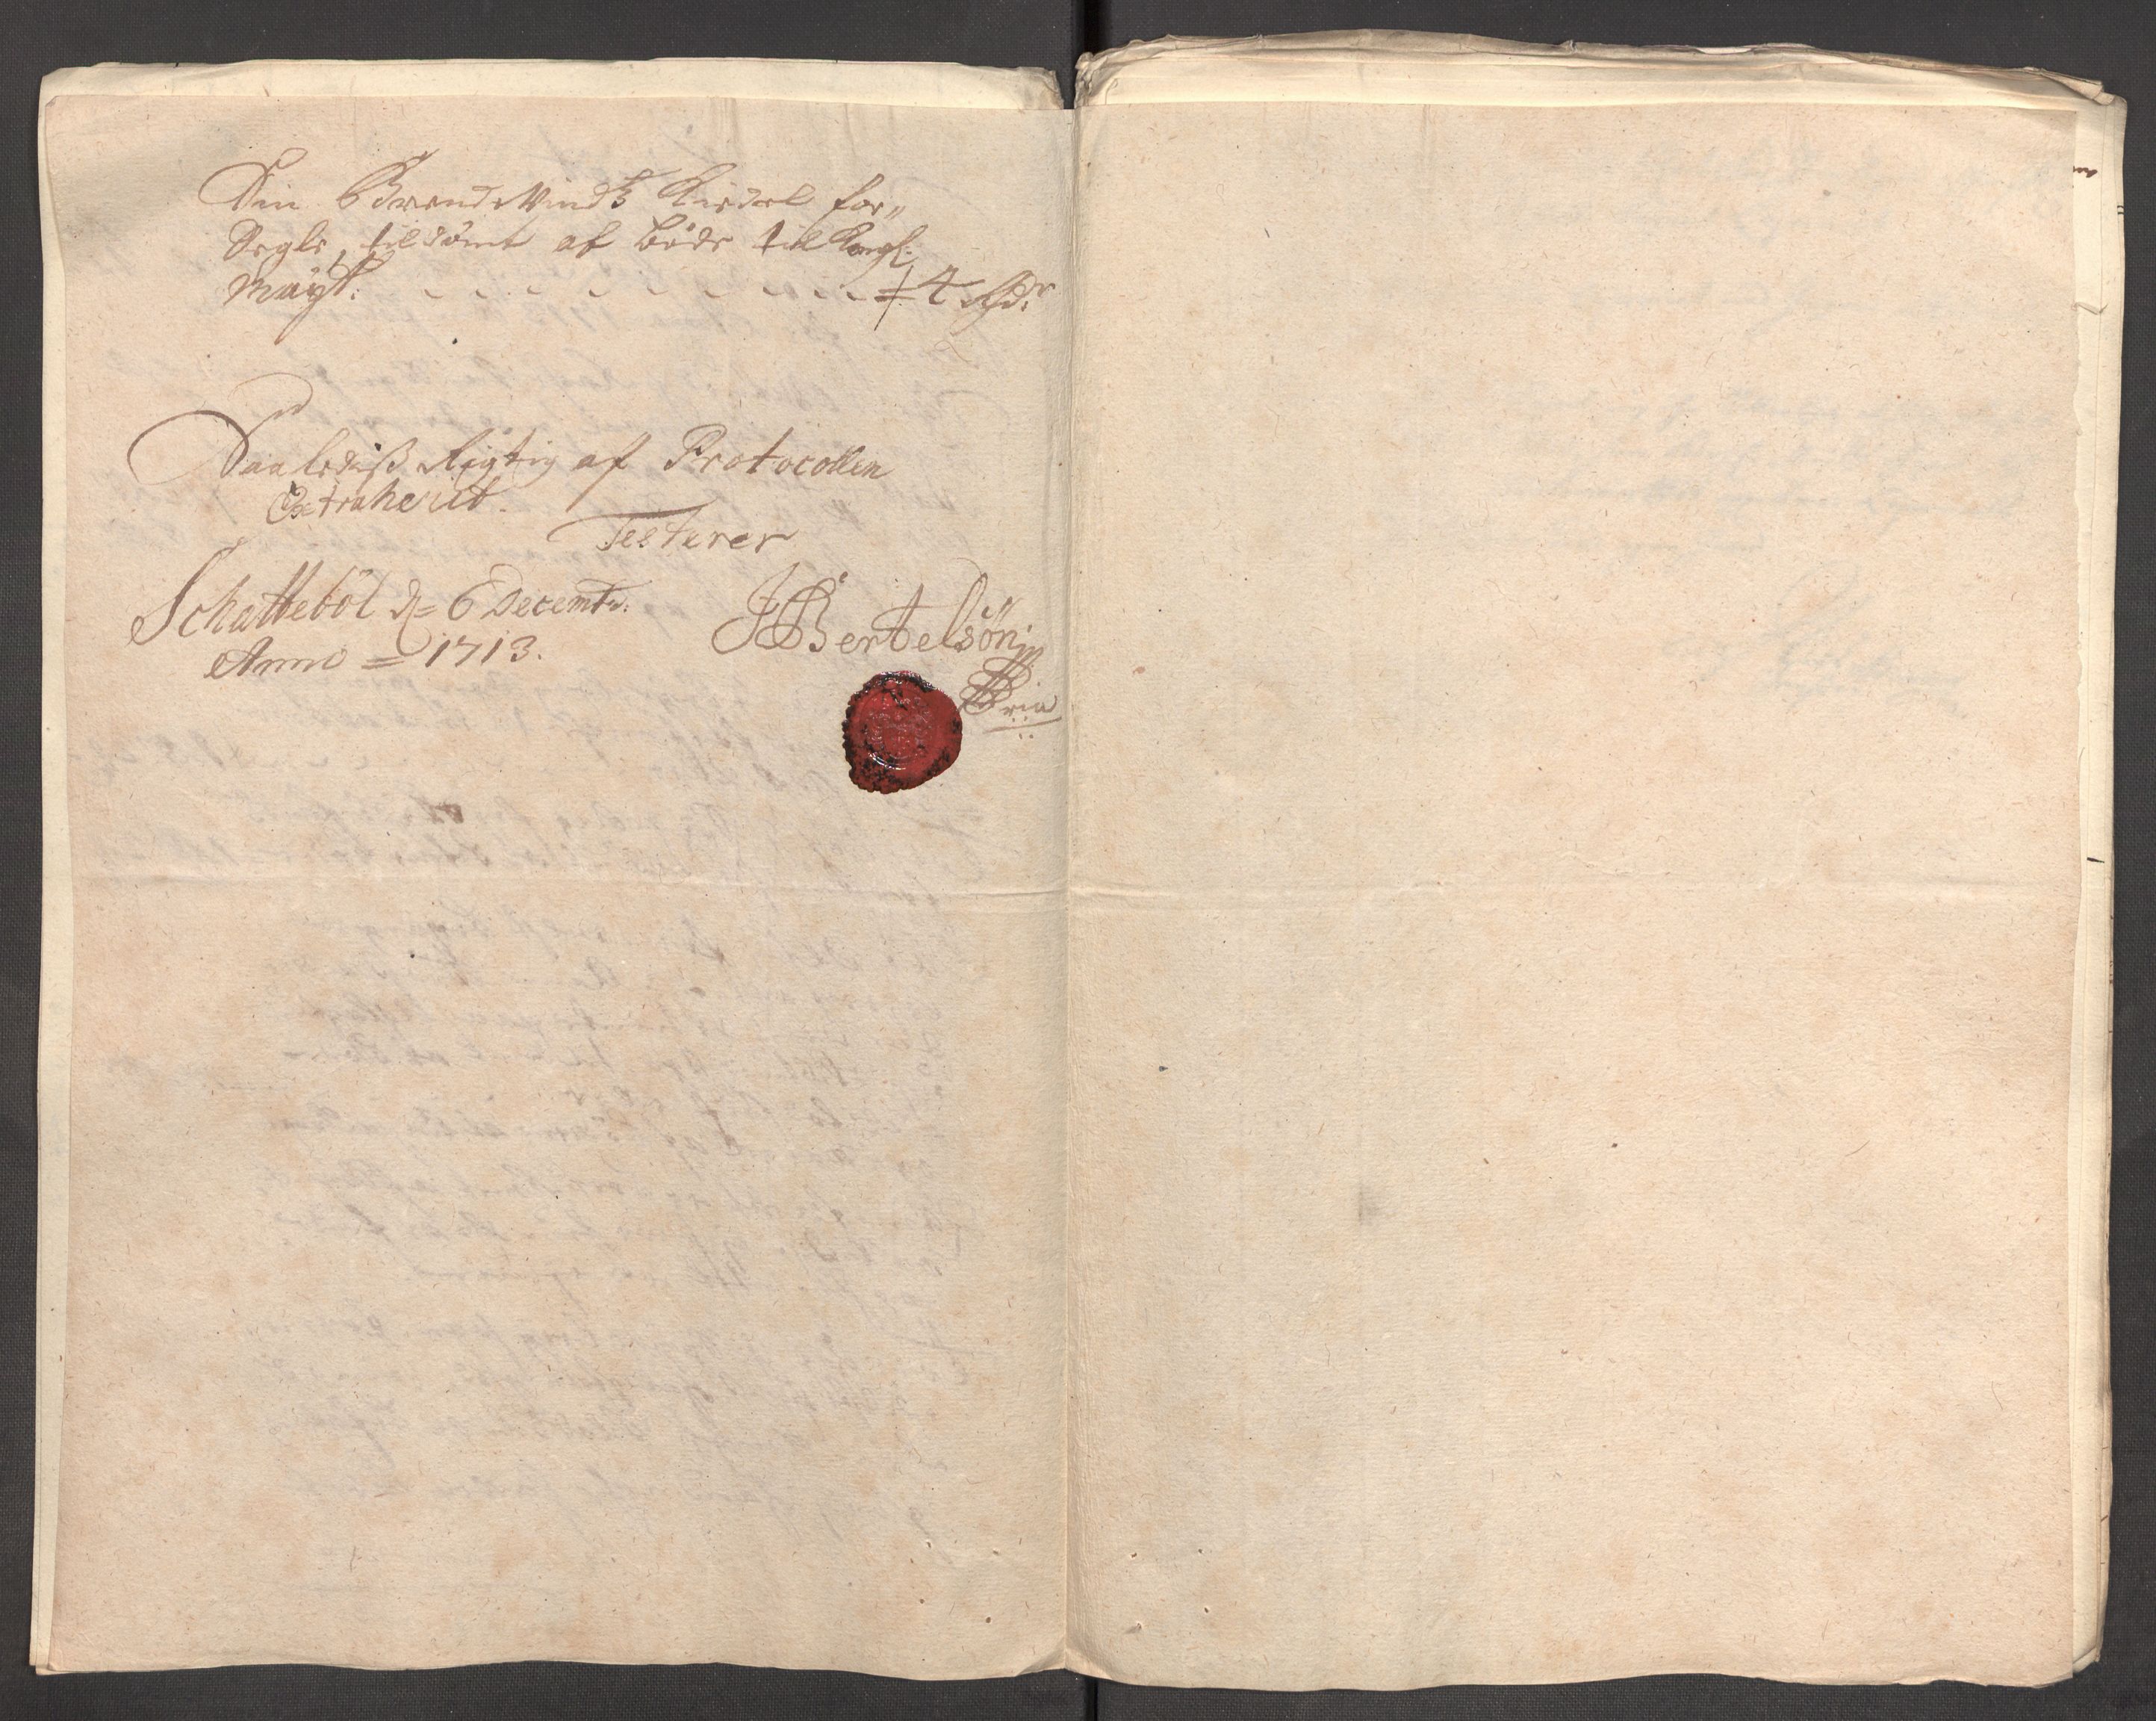 Sin Brendevinds Kiedel for„
Segle, tildömt at bøde til Kongl:
Mayt: - - - - - - - - - 4 Rdr
Saalediß Rigtig af Protocollen
Extraherit.
Testerer
Schatteböl d= 6 Decembr:
Anno = 1713.
JBertelsön